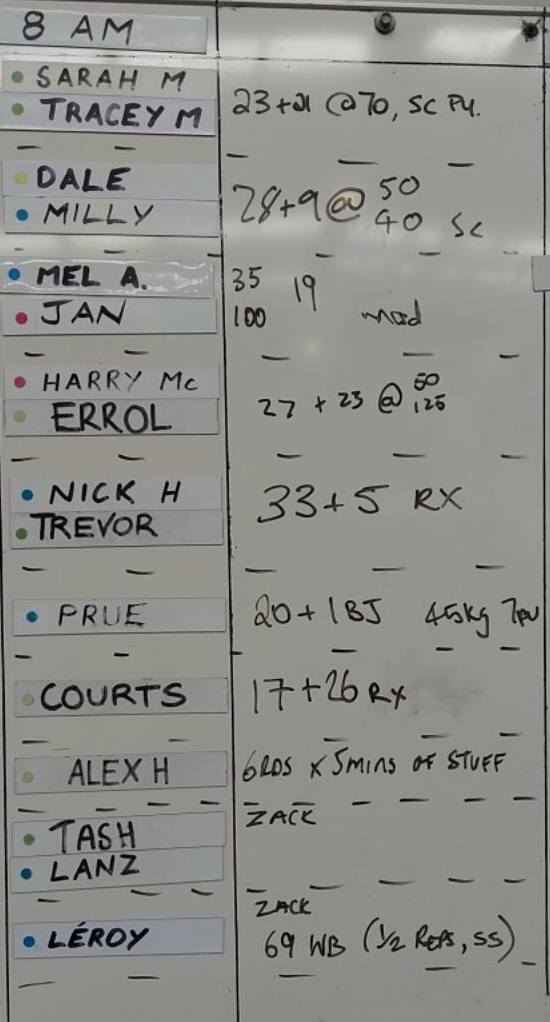 8 AM
SARAH M
TRACEY M
23+21 @ 70, SC PU.
DALE
MILLY
28+9 @ 50
40 SC
MEL A.
JAN
35
100
19
mod
HARRY Mc
ERROL
27 + 23 @ 50
125
NICK H
TREVOR
33+5 RX
PRUE
20+1BJ 45kg
COURTS
17+26 RX
ALEX H
6RDS x 5MINS OF STUFF
TASH
LANZ
ZACK
LÉROY
ZACK
69 WB (1/2 REPS, SS)